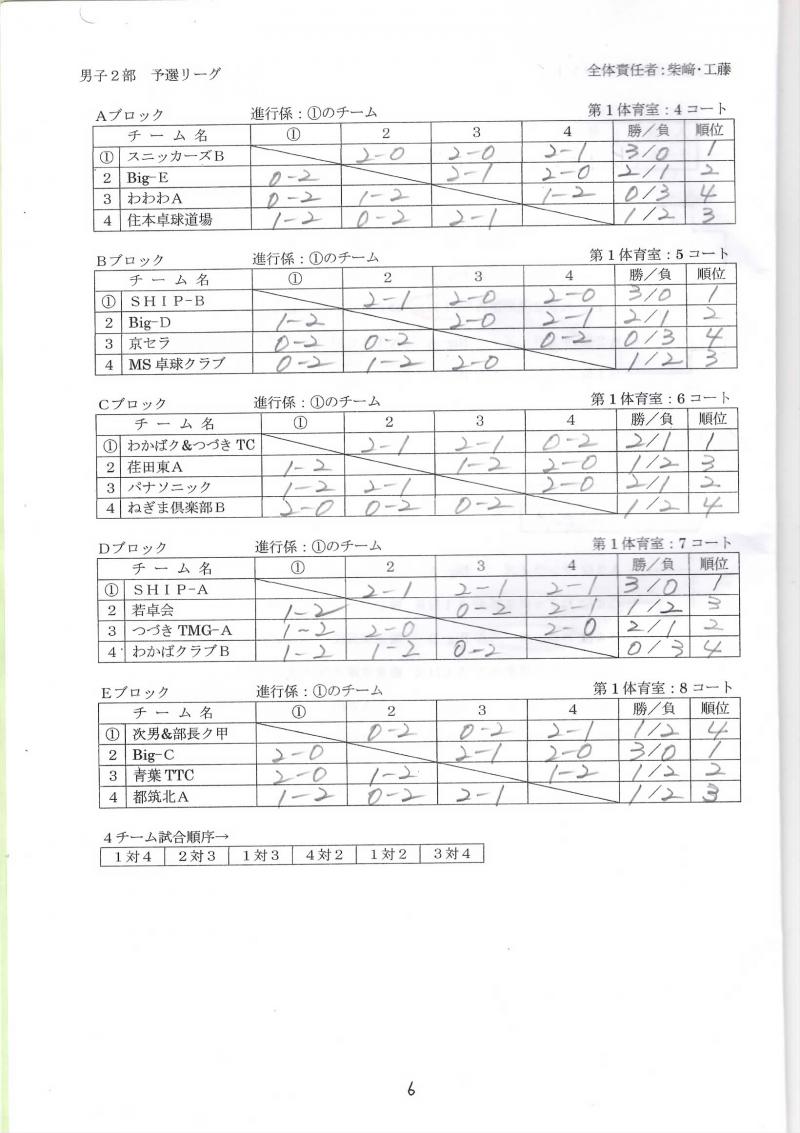 男子２部　予選リーグ　全体責任者：柴﨑・工藤
Ａブロック　進行係：①のチーム　第１体育室：４コート
チーム名　①　２　３　４　勝／負　順位
①　スニッカーズＢ　2-0　2-0　2-1　3/0　1
２　Big-Ｅ　0-2　2-1　2-0　2/1　2
３　わわわＡ　0-2　1-2　1-2　0/3　4
４　住本卓球道場　1-2　0-2　2-1　1/2　3
Ｂブロック　進行係：①のチーム　第１体育室：５コート
チーム名　①　２　３　４　勝／負　順位
①　ＳＨＩＰ-Ｂ　2-1　2-0　2-0　3/0　1
２　Big-Ｄ　1-2　2-0　2-1　2/1　2
３　京セラ　0-2　0-2　0-2　0/3　4
４　MS 卓球クラブ　0-2　1-2　2-0　1/2　3
Ｃブロック　進行係：①のチーム　第１体育室：６コート
チーム名　①　２　３　４　勝／負　順位
①　わかばク&つづき TC　2-1　2-1　0-2　2/1　1
２　荏田東Ａ　1-2　1-2　2-0　1/2　3
３　パナソニック　1-2　2-1　2-0　2/1　2
４　ねぎま倶楽部Ｂ　2-0　0-2　0-2　1/2　4
Ｄブロック　進行係：①のチーム　第１体育室：７コート
チーム名　①　２　３　４　勝／負　順位
①　ＳＨＩＰ-Ａ　2-1　2-1　2-1　3/0　1
２　若卓会　1-2　0-2　2-1　1/2　3
３　つづき TMG-A　1-2　2-0　2-0　2/1　2
４　わかばクラブＢ　1-2　1-2　0-2　0/3　4
Ｅブロック　進行係：①のチーム　第１体育室：８コート
チーム名　①　２　３　４　勝／負　順位
①　次男&部長ク甲　0-2　0-2　2-1　1/2　4
２　Big-C　2-0　2-1　2-0　3/0　1
３　青葉 TTC　2-0　1-2　1-2　1/2　2
４　都筑北Ａ　1-2　0-2　2-1　1/2　3
４チーム試合順序→
１対４　２対３　１対３　４対２　１対２　３対４
6